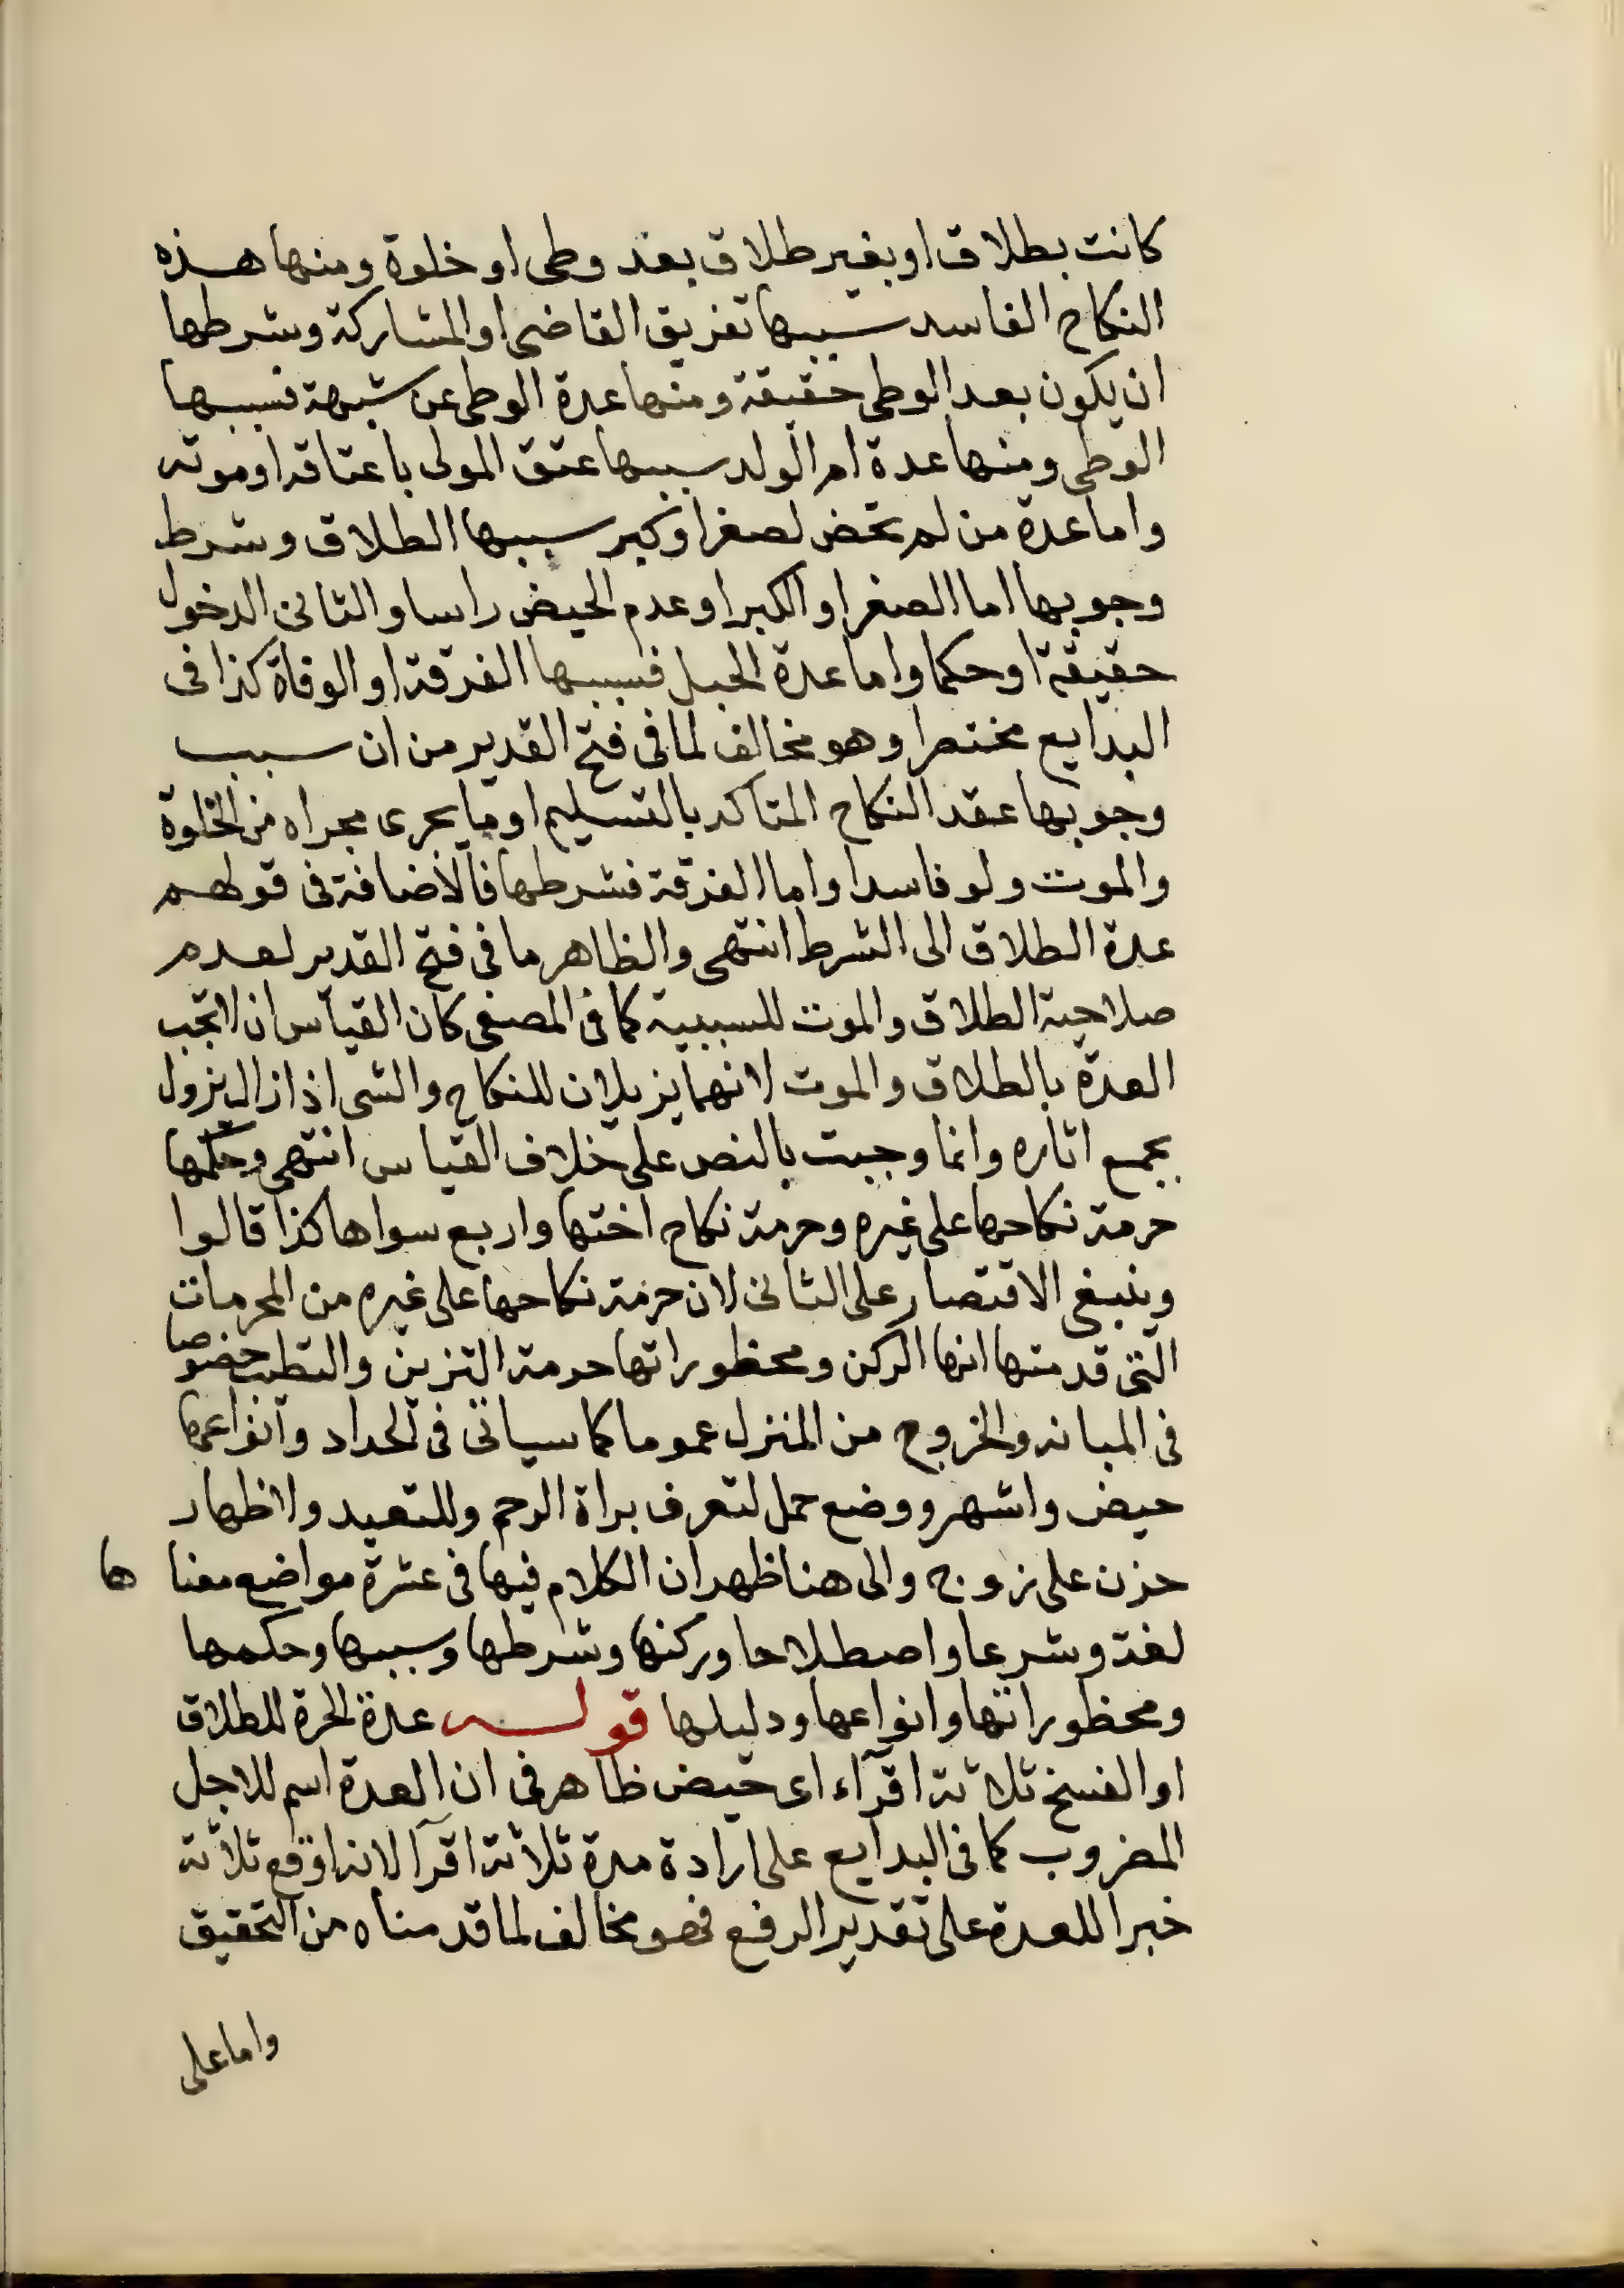 كانت بطلاق او بغير طلاق بعد وطى او خلوة ومنها هذه
النكاح الفاسد سببها تفريق القاضى او المشاركة وشرطها
ان يكون بعد الوطى حقيقة ومنها عدة الوطى عن شبهة فسببها
الوطى ومنها عدة ام الولد سببها عتق المولى باعتاقه او موته
واما عدة من لم تحض لصغر او كبر سببها الطلاق وشرط
وجوبها اما الصغر او الكبر او عدم الحيض راسا والثانى الدخول
حقيقة او حكما واما عدة الحبل فسببها الفرقة او الوفاة كذا فى
البدايع مختصرا وهو مخالف لما فى فتح القدير من ان سبب
وجوبها عقد النكاح المتاكد بالتسليم او ما يجرى مجراه من الخلوة
والموت ولو فاسدا واما الفرقة فشرطها فالاضافة فى قولهم
عدة الطلاق الى الشرط انتهى والظاهر ما فى فتح القدير لعدم
صلاحية الطلاق والموت للسببية كما فى المصفى كان القياس ان لا تجب
العدة بالطلاق والموت لانهما يزيلان للنكاح والشى اذا زال يزول
بجمع اثاره وانما وجبت بالنص على خلاف القياس انتهى وحكمها
حرمة نكاحها على غيره وحرمة نكاح اختها واربع سواها كذا قالوا
وينبغى الاقتصار على الثانى لان حرمة نكاحها على غيره من المحرمات
التى قدمتها انها الركن ومحظوراتها حرمة التزين والتطيب خصوصا
فى المبانه والخروج من المنزل عموما كما سياتى فى الحداد وانواعها
حيض واشهر ووضع حمل لتعرف براة الرحم وللتعبد ولاظهار
حزن على زوج والى هنا ظهر ان الكلام فيها فى عشرة مواضع معنا ها
لغة وشرعا واصطلاحا وركنها وشرطها وسببها وحكمها
ومحظوراتها وانواعها ودليلها قوله عدة الحرة للطلاق
او الفسخ ثلاثة اقرآء اى حيض ظاهر فى ان العدة اسم للاجل
المضروب كما فى البدايع على ارادة مدة ثلاثة اقرآ لانه اوقع ثلاثة
خبرا للعدة على تقدير الرفع فهو مخالف لما قدمناه من التحقيق
واما على